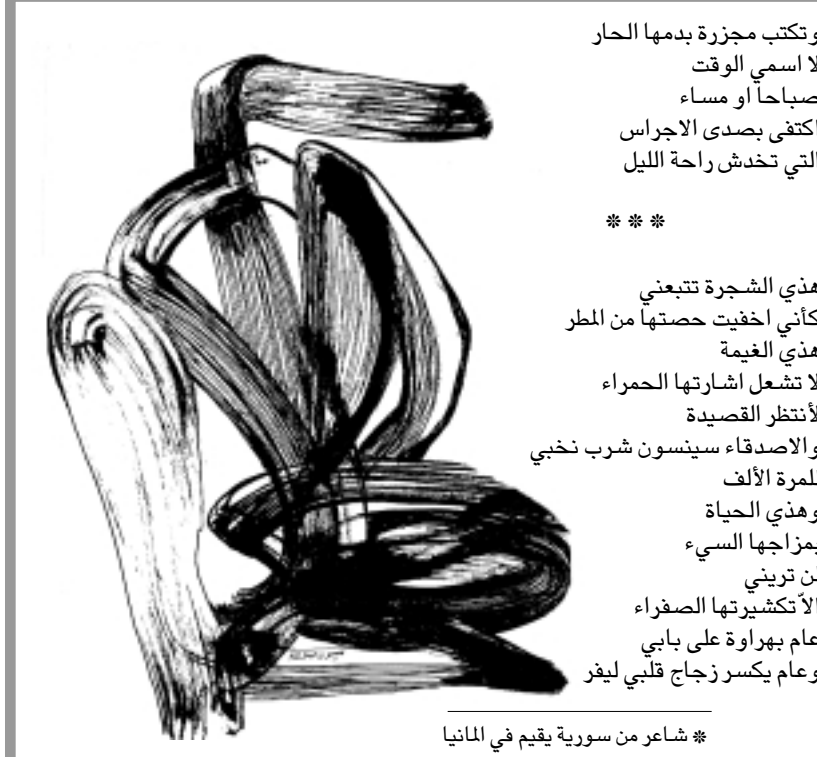 وتكتب مجزرة بدمها الحار
لا اسمي الوقت
صباحاً او مساء
اكتفى بصدى الاجراس
التي تخدش راحة الليل
* * *
هذي الشجرة تتبعني
كأني اخفيت حصتها من المطر
هذي الغيمة
لا تشعل اشارتها الحمراء
لأنتظر القصيدة
والاصدقاء سينسون شرب نخبي
للمرة الألف
وهذي الحياة
بمزاجها السيء
لن تريني
الاّ تكشيرتها الصفراء
عام بهراوة على بابي
وعام يكسر زجاج قلبي ليفر
* شاعر من سورية يقيم في المانيا